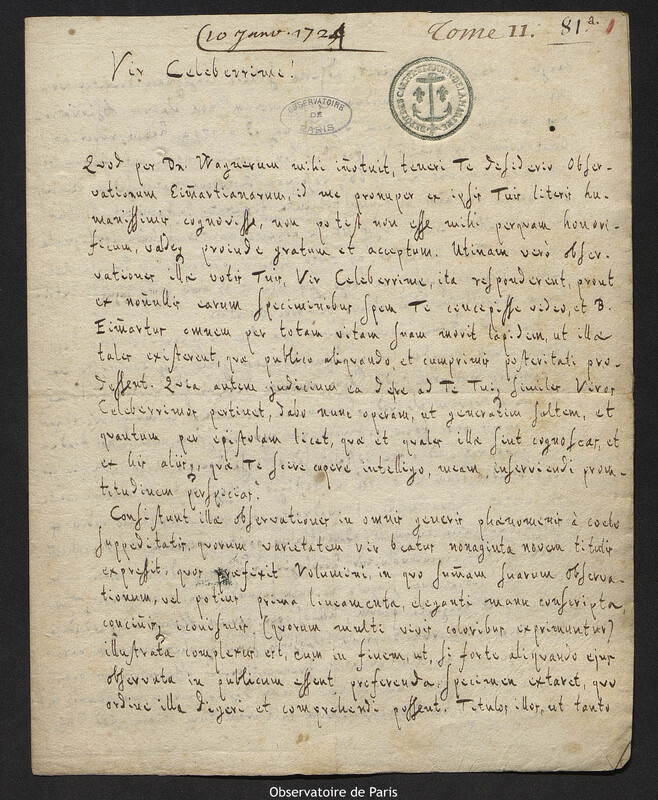 (10 Janv. 1724
Tome II. 81 a.
Vir Celeberrime!
OBSERVATOIRE DE PARIS
Quod per Dn. Wagnerum mihi iñotuit, teneri Te desiderio Obser-
vationum Eim̃artianarum, id me pronuper ex ipsis Tuis literis hu-
manissimis cognovisse, non potest non esse mihi perquam honori-
ficum, valdeq proinde gratum et acceptum. Utinam verò obser-
vationes illæ votis Tuis, Vir Celeberrime, ita responderent, prout
ex nonullis earum speciminibus spem Te concepisse video, et B.
Eim̃artus omnem per totam vitam suam movit lapidem, ut illæ
tales existerent, quæ publico aliquando, et cumprimis posteritati pro-
dessent. Quia autem judicium ea de re ad Te Tuiq similes Viros
Celeberrimos pertinet, dabo nunc operam, ut generatim saltem, et
quantum per epistolam licet, quæ et quales illæ sint cognoscas, et
ex his aliis, quæ Te scire cupere intelligo, meam inserviendi prom-
titudinem perspicias.
Consistunt illæ observationes in omnis generis phænomenis à coelo
suppeditatis, quorum varietatem vir beatus nonaginta novem titulis
expressit, quos præfixit Volumini, in quo sum̃am suarum Observa-
tionum, vel potius prima lineamenta, eleganti manu conscripta
concinnisq iconismis (quorum multi vivis coloribus exprimuntur)
illustrata complexus est, eum in finem, ut, si forte aliquando ejus
observata in publicum essent proferenda, specimen extaret, quo
ordine illa digeri et comprehendi possent. Titulos illos, ut tanto
Observatoire de Paris